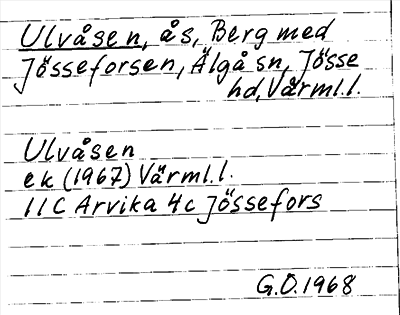 Ulvåsen, ås, Berg med
Jösseforsen, Älgå sn, Jösse
hd, Värml.l.
Ulvåsen
ek (1967) Värml.l.
11C Arvika 4c Jössefors
G.Ö.1968